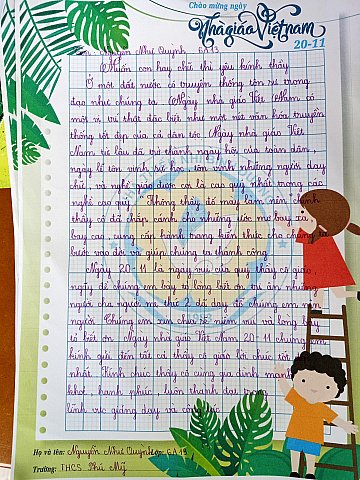 Chào mừng ngày
Nhà giáo Việt Nam
20-11
Tên: Nguyễn Như Quỳnh 6A13
Muốn con hay chữ thì yêu kính thầy
Ở một đất nước có truyền thống tôn sư trọng
đạo như chúng ta. Ngày nhà giáo Việt Nam có
một vị trí nhất đặc biệt như một nét văn hóa truyền
thống tốt đẹp của cả dân tộc. Ngày nhà giáo Việt
Nam từ lâu đã trở thành ngày hội của toàn dân,
ngày lễ tôn vinh sự học, tôn vinh những người dạy
chữ, và nghề giáo được coi là cao quý nhất trong các
nghề cao quý. Không thầy đố mày làm nên chính
thầy cô đã chắp cánh cho những ước mơ bay xa,
bay cao, cung cấp hành trang kiến thức cho chúng ta
bước vào đời và giúp chúng ta thành công.
Ngày 20 11 là ngày vui của quý thầy cô giáo,
ngày để chúng em bày tỏ lòng biết ơn tri ân những
người cho người mẹ thứ 2 đã dạy dỗ chúng em nên
người. Chúng em xin chia sẻ niềm vui và lòng bày
tỏ biết ơn Ngày nhà giáo Việt Nam 20 11 chúng em
kính gửi đến tất cả thầy cô giáo lời chúc tốt
nhất. Kính chúc thầy cô cùng gia đình mạnh
khỏe, hạnh phúc, luôn thành đạt trong
lĩnh vực giảng dạy và công
Họ và tên: Nguyễn Như Quỳnh Lớp: 6A13
Trường: THCS Phú Mỹ